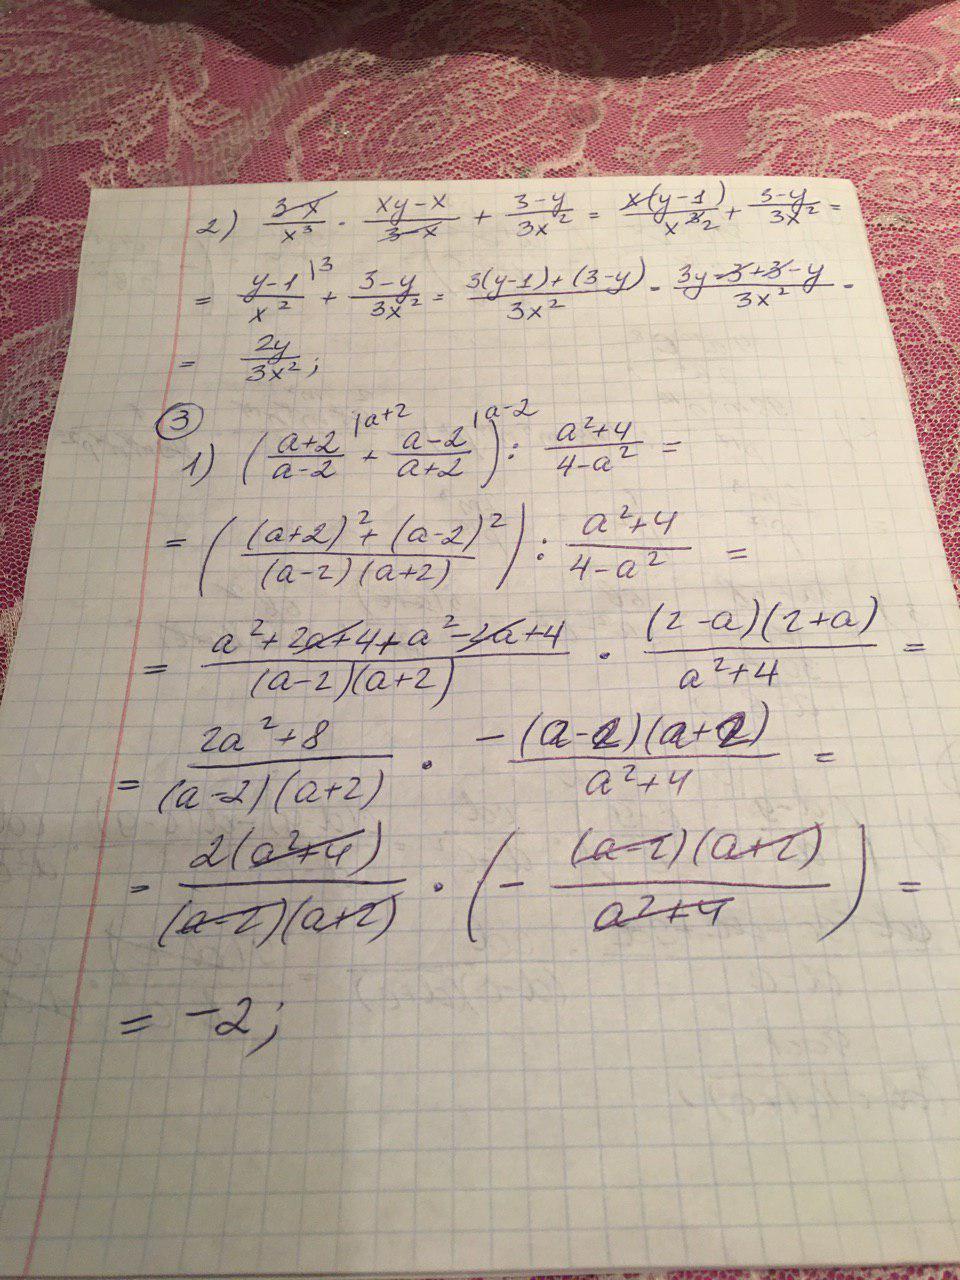 2) (3-x)/x³ · (xy-x)/(3-x) + (3-y)/3x² = x(y-1)/x³ ² + (3-y)/3x² =
= (y-1)/x² |3 + (3-y)/3x² = (3(y-1)+(3-y))/3x² = (3y-3+3-y)/3x² =
= 2y/3x²;
③
1) ((a+2)/(a-2) |a+2 + (a-2)/(a+2) |a-2) : (a²+4)/(4-a²) =
= (((a+2)²+(a-2)²)/((a-2)(a+2))) : (a²+4)/(4-a²) =
= (a²+2a+4+a²-2a+4)/((a-2)(a+2)) · ((2-a)(2+a))/(a²+4) =
= (2a²+8)/((a-2)(a+2)) · -((a-2)(a+2))/(a²+4) =
= (2(a²+4))/((a-2)(a+2)) · (-((a-2)(a+2))/(a²+4)) =
= -2;